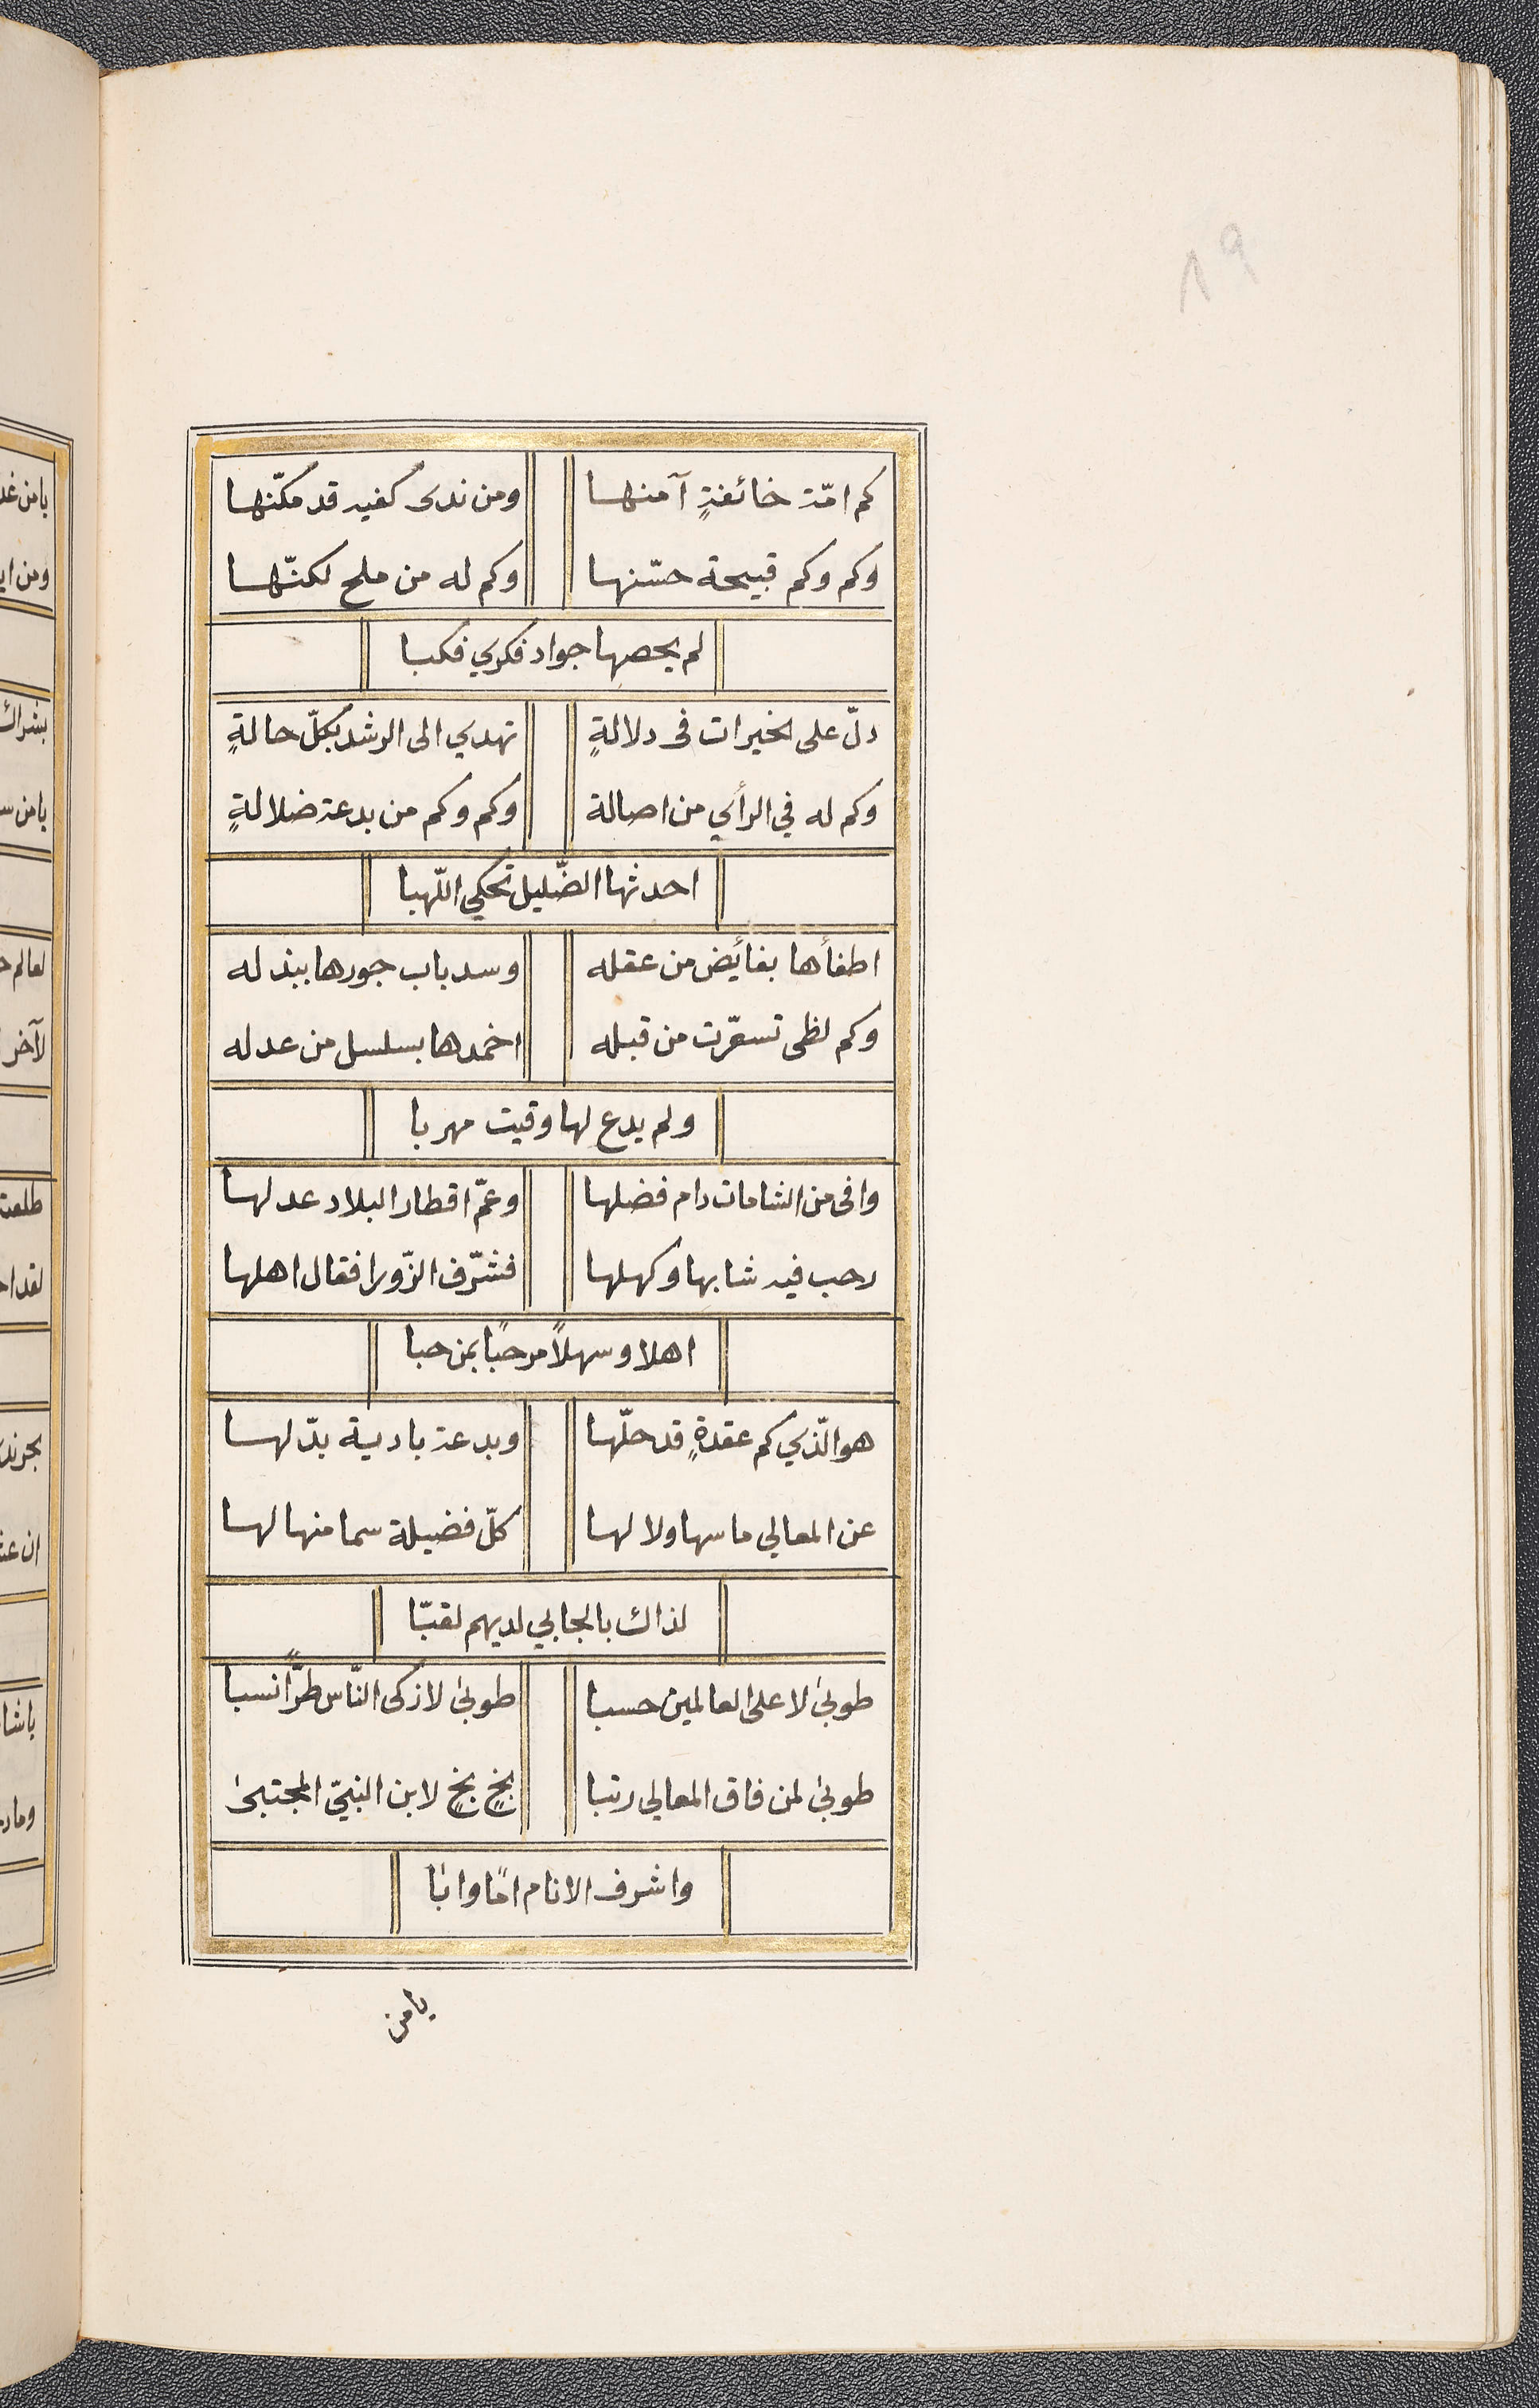 ١٩
كم امّة خائفةٍ آمنها ومن ندى كفيه قد مكّنها
وكم وكم قبيحة حسّنها وكم له من ملح لكنّها
لم يحصها جواد فكري فكبا
دلّ على الخيرات فى دلالةٍ تهدي الى الرشد بكلّ حالةٍ
وكم له في الرأي من اصالة وكم وكم من بدعة ضلالةٍ
احدثها الضّليل تحكي اللّهبا
اطفأها بفائض من عقله وسد باب جورها ببذله
وكم لظى تسعّرت من قبله اخمدها بسلسل من عدله
ولم يدع لها وقيت مهربا
وافى من الشامات دام فضلها وعمّ اقطار البلاد عدلها
رحب فيه شابها وكهلها فشرّف الزّورا فقال اهلها
اهلا وسهلاً مرحبًا بمن حبا
هو الّذي كم عقدةٍ قد حلّها وبدعة بادية بدّلها
عن المعالي ما سها ولا لها كلّ فضيلة سما منها لها
لذاك بالجابي لديهم لقبّا
طوبىٰ لا على العالمين حسبا طوبىٰ لازكى النّاس طرًّا نسبا
طوبىٰ لمن فاق المعالي رتبا بخٍ بخٍ لابن النبيّ المجتبىٰ
واشرف الانام امًا وابًا
يا من